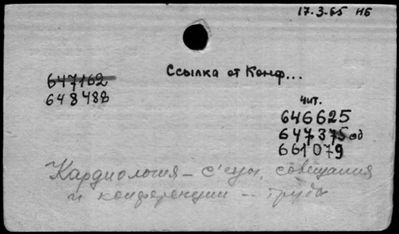 17.3.65 НБ
Ссылка от Конф...
647162
648488
чит.
646625
647375 од
661079
Кардиология – с'езды, совещания
и конференции – труды